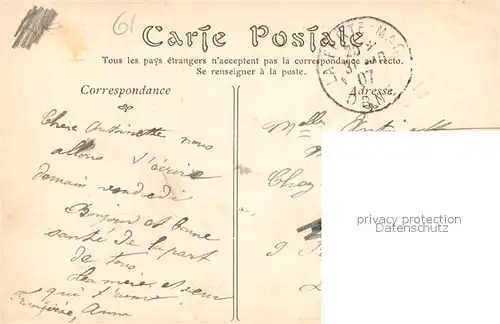 61
Carte Postale
Tous les pays étrangers n'acceptent pas la correspondance au recto.
Se renseigner à la poste.
Correspondance
Adresse
LA FERTE-MACE
07
ORNE
Chere Antoinette nous
allons t'écrire
demain vendredi
Bonjour et bonne
santé de la part
de tous
ta mère et seur
qui t'aime
Anna
Melle
Chez
9
privacy protection
www.ansichtskartenversand.com